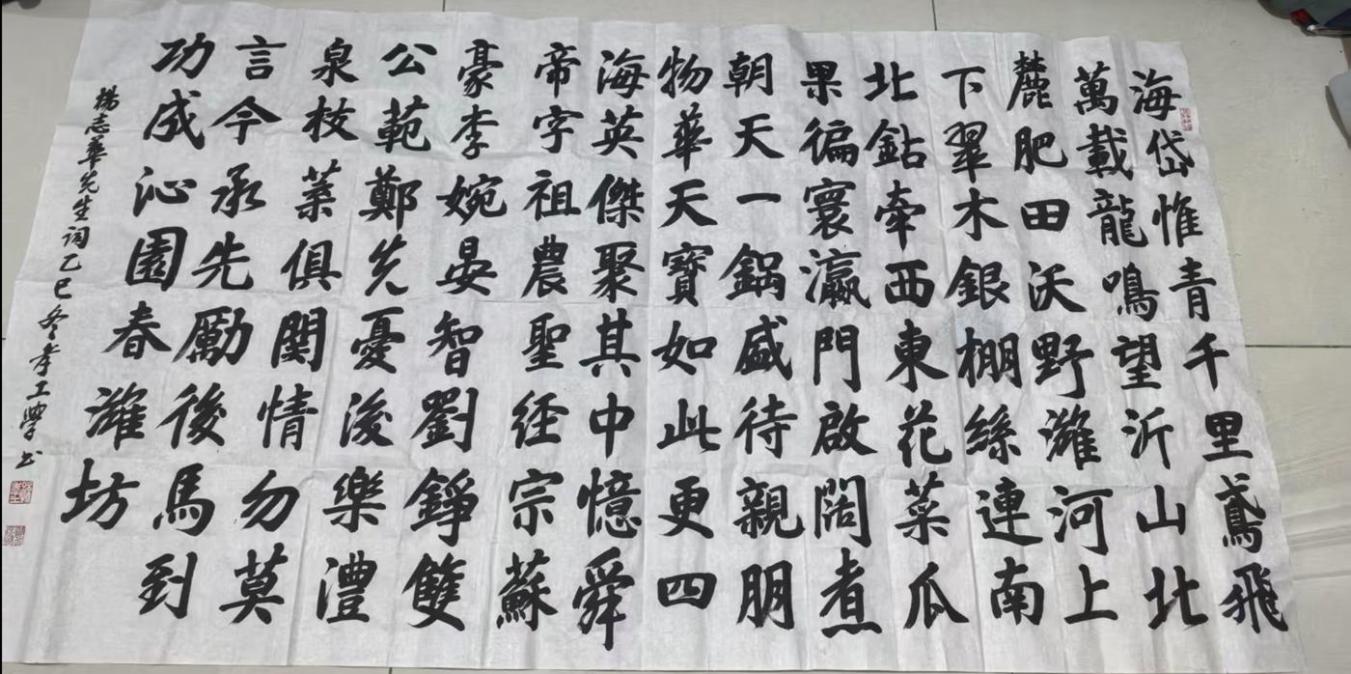 海岱惟青千里鳶飛
萬載龍鳴望沂山北
麓肥田沃野濰河上
下翠木銀棚絲連南
北鈷牵西東花菜瓜
果徧寰瀛門啟闊煮
朝天一鍋盛待親朋
物華天寶如此更四
海英傑聚其中憶舜
帝字祖農聖经宗蘇
豪李婉晏智劉錚雙
公範鄭先憂後樂澧
泉枝葉俱関情勿莫
言今承先勵後馬到
功成沁園春濰坊
楊志華先生詞乙巳冬孝工學书